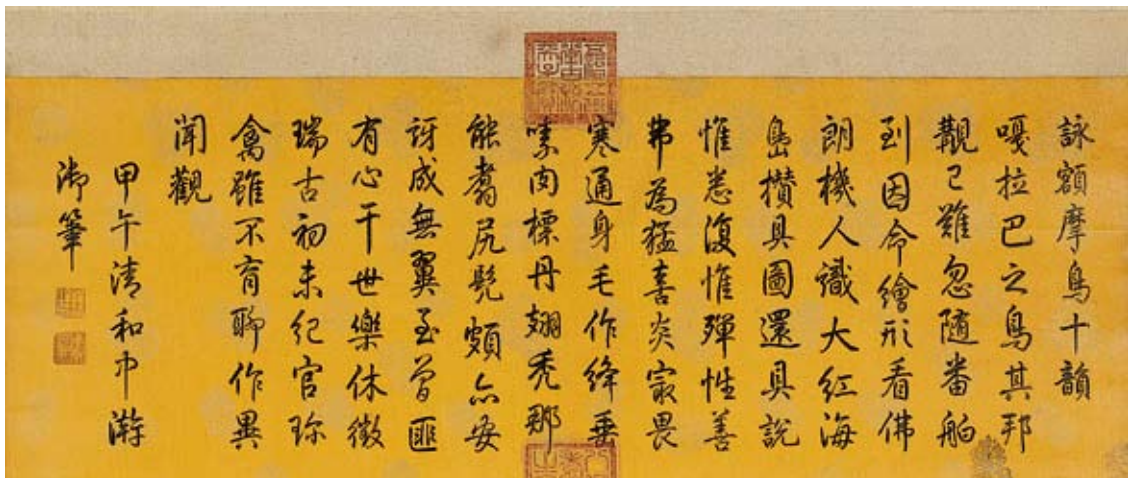 詠額摩鳥十韻
嘎拉巴之鳥其邦
覯已難忽隨番舶
到因命繪形看佛
朗機人識大紅海
島攢具圖還具說
惟悉復惟殫性善
弗為猛喜炎最畏
寒通身毛作絳垂
嗉肉標丹翅禿那
能翥尻髡頗亦安
訝成無翼至曾匪
有心干世樂休徵
瑞古初未紀官珍
禽雖不育聊作異
聞觀
甲午清和中澣
御筆